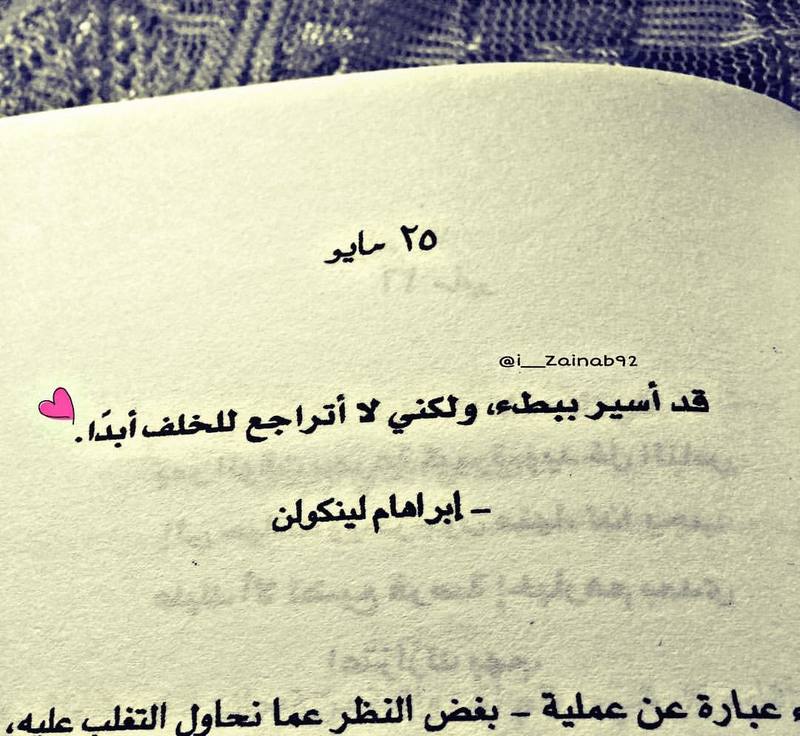 ٢٥ مايو
@i__Zainab92
قد أسير ببطء، ولكني لا أتراجع للخلف أبدًا.
– إبراهام لينكولن
عبارة عن عملية – بغض النظر عما نحاول التغلب عليه،